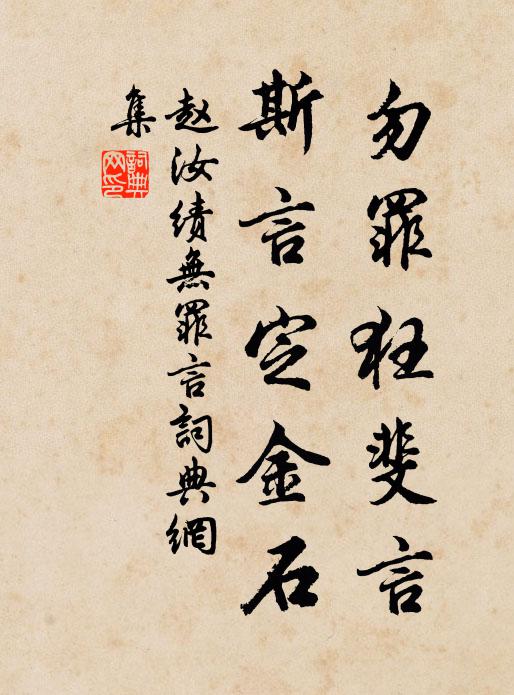 勿罪狂斐言
斯言定金石
赵汝績無罪言詞典網
集
詞典
网印